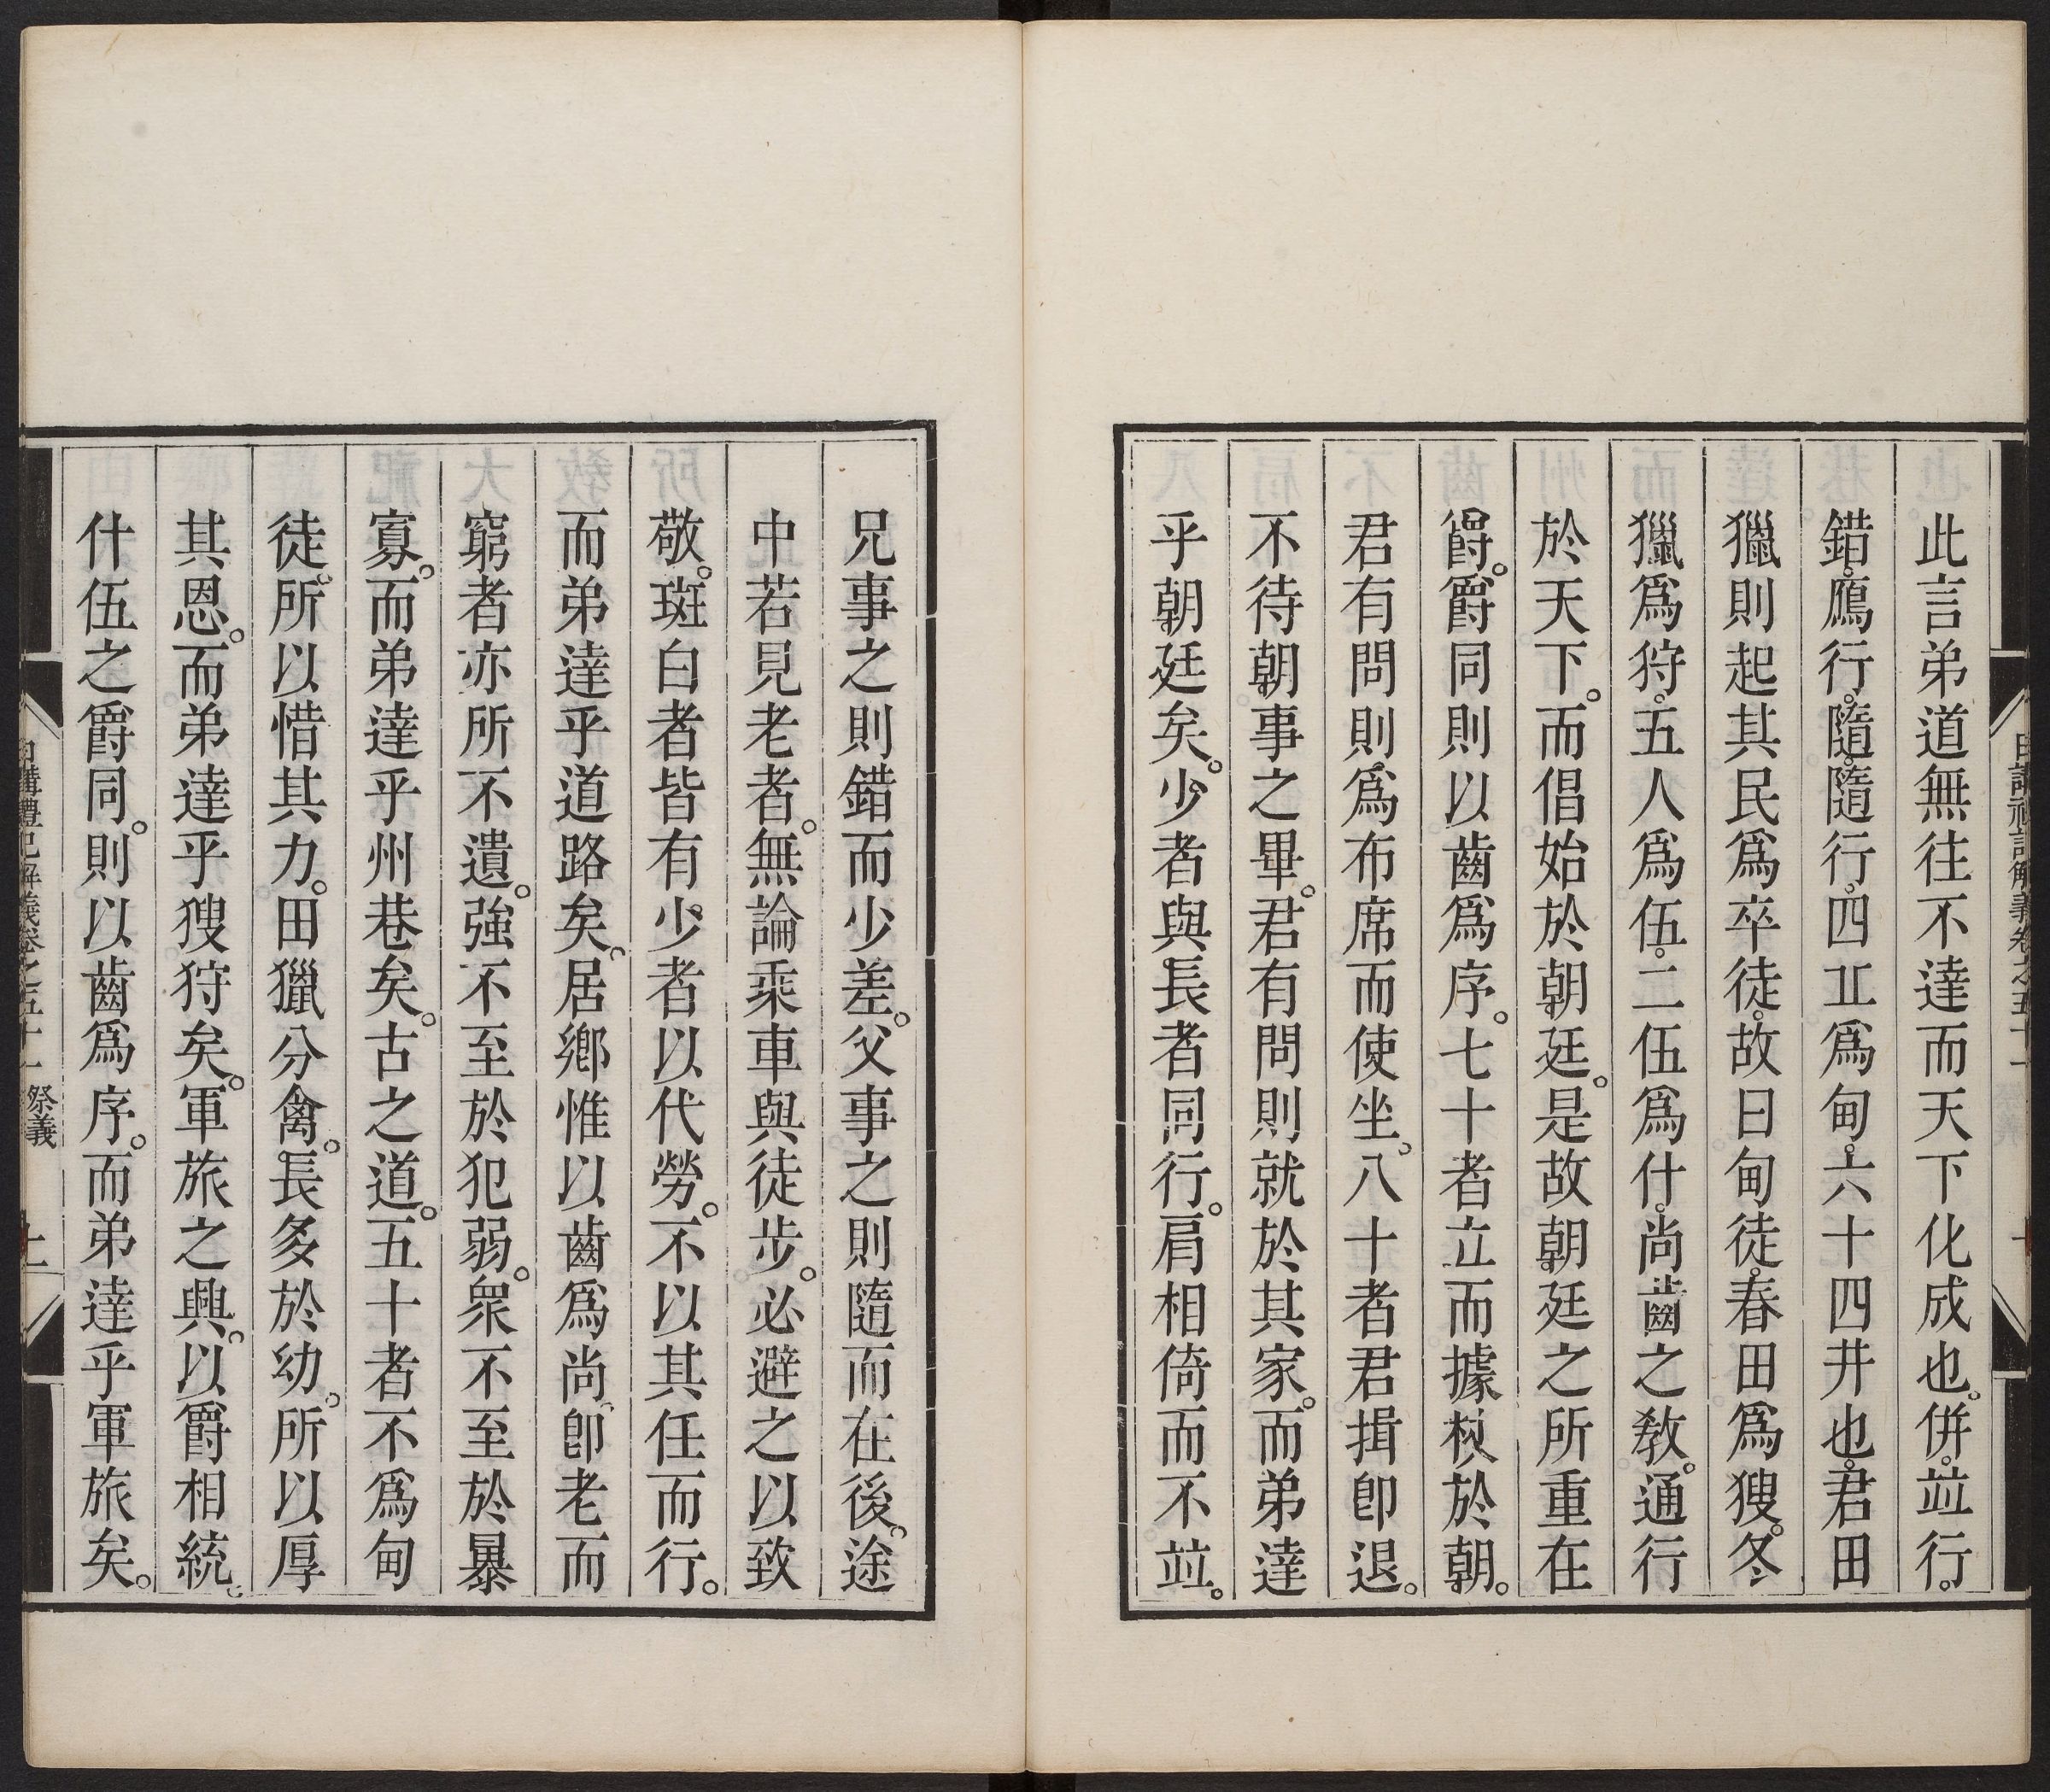 此言弟道無往不達而天下化成也。併。竝行。
錯。鴈行。隨。隨行。四丘爲甸。六十四井也。君田
獵則起其民爲卒徒。故曰甸徒。春田爲獀。冬
獵爲狩。五人爲伍。二伍爲什。尚齒之敎。通行
於天下。而倡始於朝廷。是故朝廷之所重在
爵。爵同則以齒爲序。七十者立而據杖於朝。
君有問則爲布席而使坐。八十者君揖卽退。
不待朝事之畢。君有問則就於其家。而弟達
乎朝廷矣。少者與長者同行。肩相倚而不竝。
兄事之則錯而少差。父事之則隨而在後。途
中若見老者。無論乘車與徒步。必避之以致
敬。斑白者皆有少者以代勞。不以其任而行。
而弟達乎道路矣。居鄕惟以齒爲尚。卽老而
窮者亦所不遺。強不至於犯弱。衆不至於暴
寡。而弟達乎州巷矣。古之道。五十者不爲甸
徒。所以惜其力。田獵分禽。長多於幼。所以厚
其恩。而弟達乎獀狩矣。軍旅之興。以爵相統。
什伍之爵同。則以齒爲序。而弟達乎軍旅矣。
日講禮記解義卷之五十一 祭義